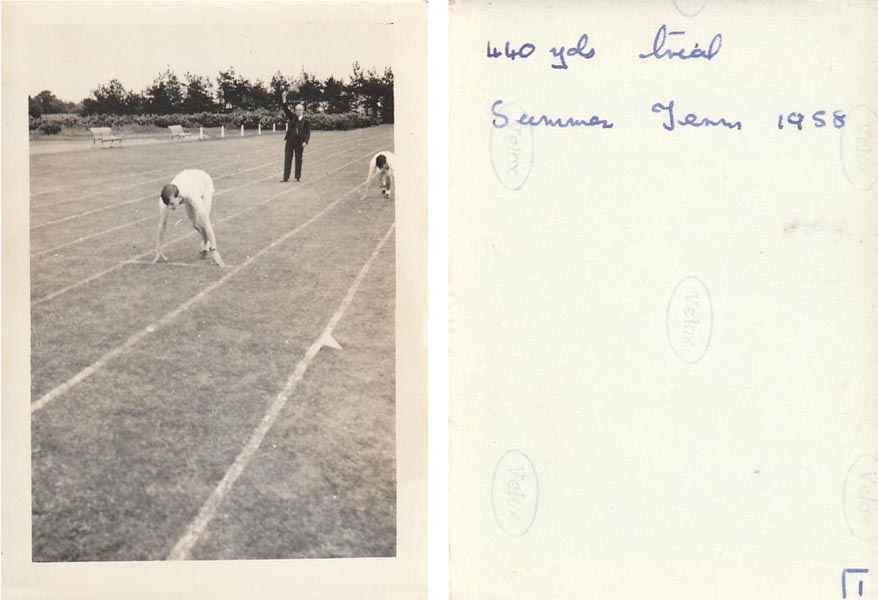 440 yds trial
Summer Term 1958
Velox
Velox
Velox
Velox
Velox